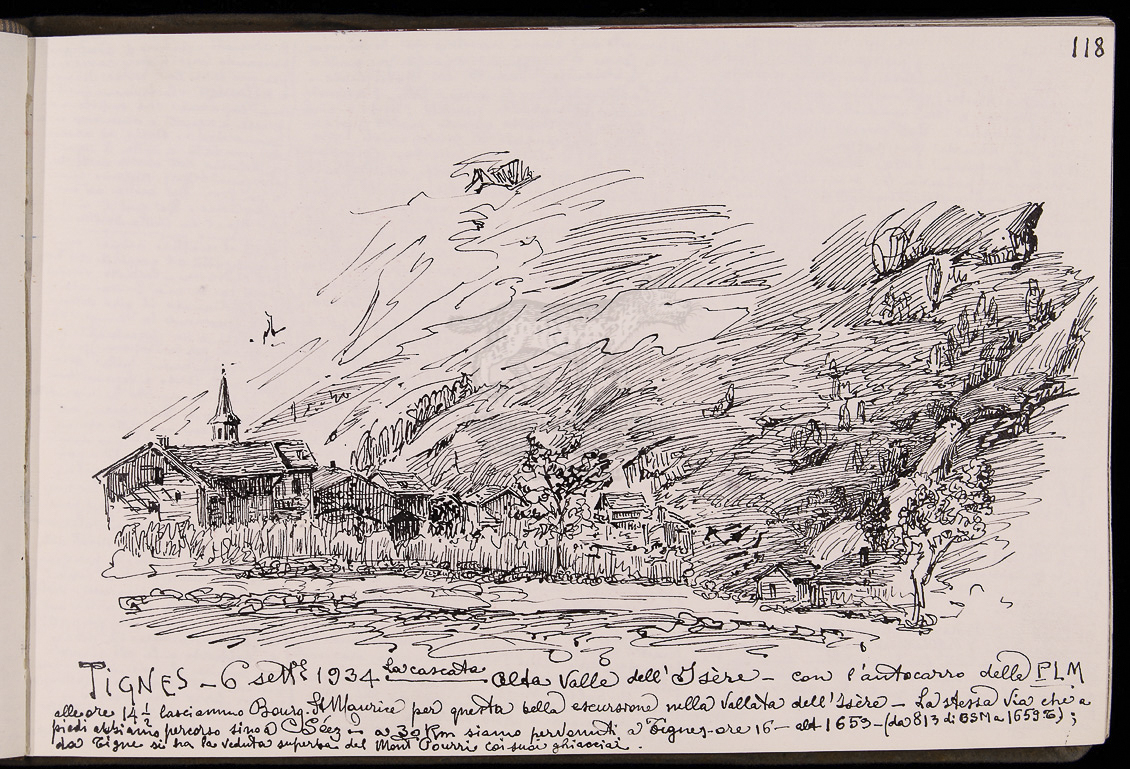 118
TIGNES - 6 settbe 1934 La cascata Alta Valle dell'Isère - con l'autocarro della PLM
alle ore 14½ lasciammo Bourg St Maurice per questa bella escursione nella Vallata dell'Isère - La stessa via che a
piedi abbiamo percorso sino a Séez - a 30 Km siamo pervenuti a Tignes - ore 16 - alt 1653 - (da 813 di BSM a 1659 T) ;
da Tigne si ha la veduta superba del Mont Pourri coi suoi ghiacciai.